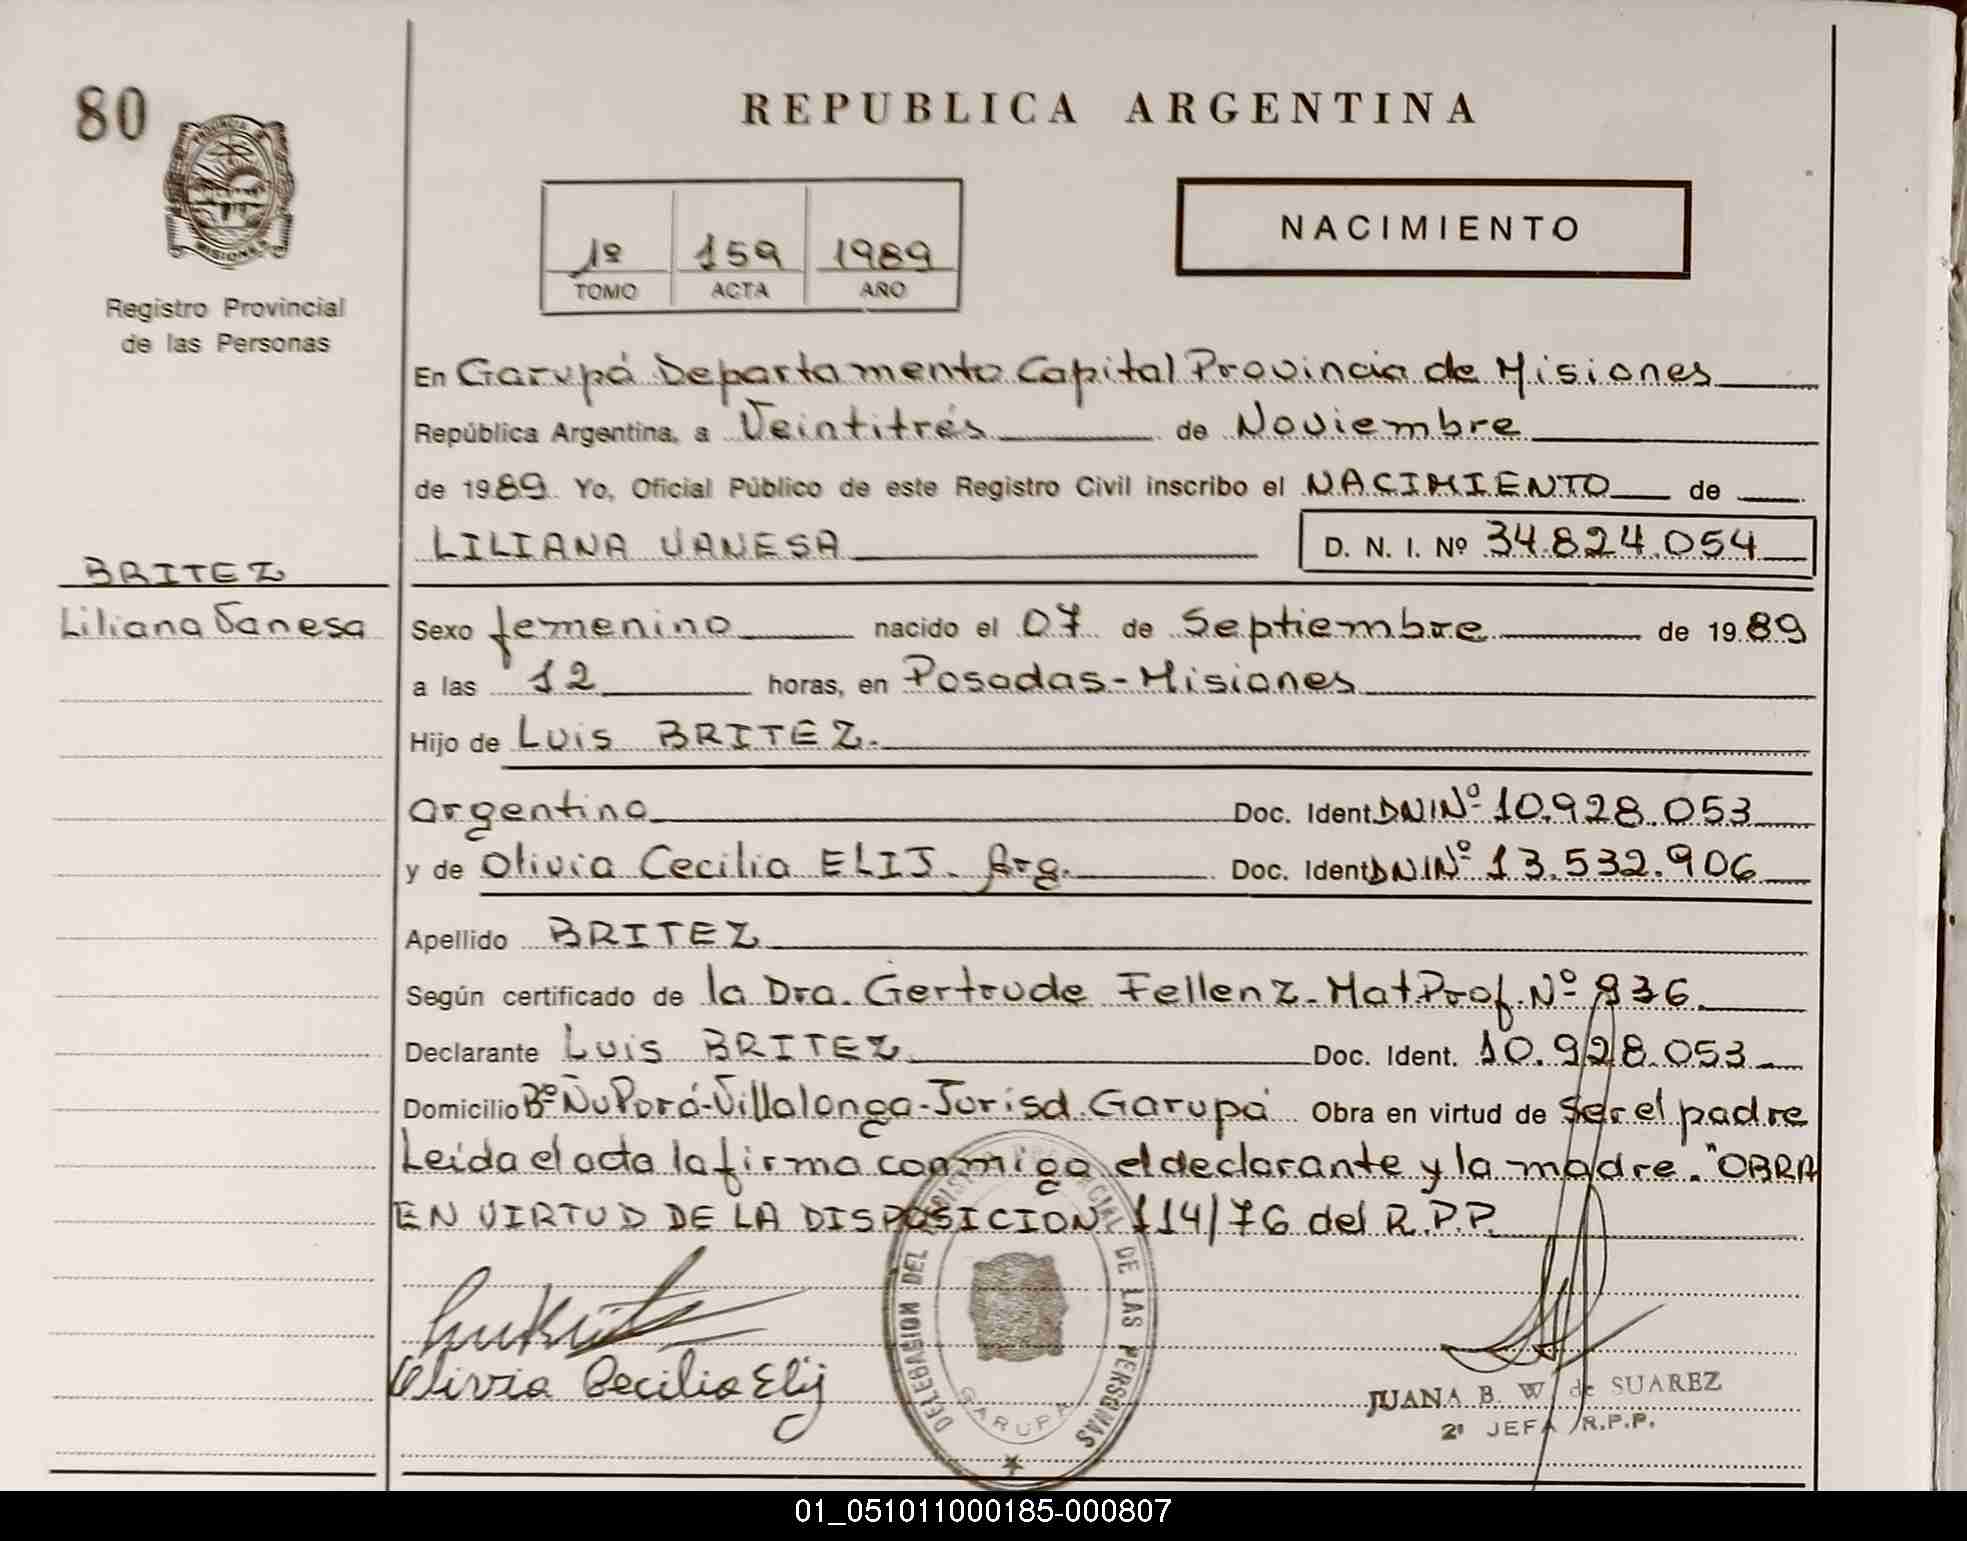 80
REPUBLICA ARGENTINA
PROVINCIA DE
MISIONES
Registro Provincial
de las Personas
1º 159 1989
TOMO ACTA AÑO
NACIMIENTO
En Garupá Departamento Capital Provincia de Misiones
República Argentina, a Veintitrés de Noviembre
de 1989 Yo, Oficial Público de este Registro Civil inscribo el NACIMIENTO de
LILIANA VANESA D. N. I. Nº 34.824.054
BRITEZ
Liliana Vanesa
Sexo femenino nacido el 07 de Septiembre de 1989
a las 12 horas, en Posadas-Misiones
Hijo de Luis BRITEZ.
argentino Doc. Ident DNINº 10.928.053
y de Olivia Cecilia ELIJ. Arg. Doc. Ident DNINº 13.532.906
Apellido BRITEZ
Según certificado de la Dra. Gertrude Fellenz. Mat.Prof. Nº 836.
Declarante Luis BRITEZ Doc. Ident. 10.928.053
Domicilio Bº ÑuPorá-Villalonga-Jurisd. Garupá Obra en virtud de Ser el padre
Leída el acta la firma conmigo el declarante y la madre. "OBRA
EN VIRTUD DE LA DISPOSICION 114/76 del R.P.P.
Olivia Cecilia Elij
DELEGASION DEL REGISTRO PROVINCIAL DE LAS PERSONAS
GARUPA
JUANA B. W. de SUAREZ
2ª JEFA R.P.P.
01_051011000185-000807